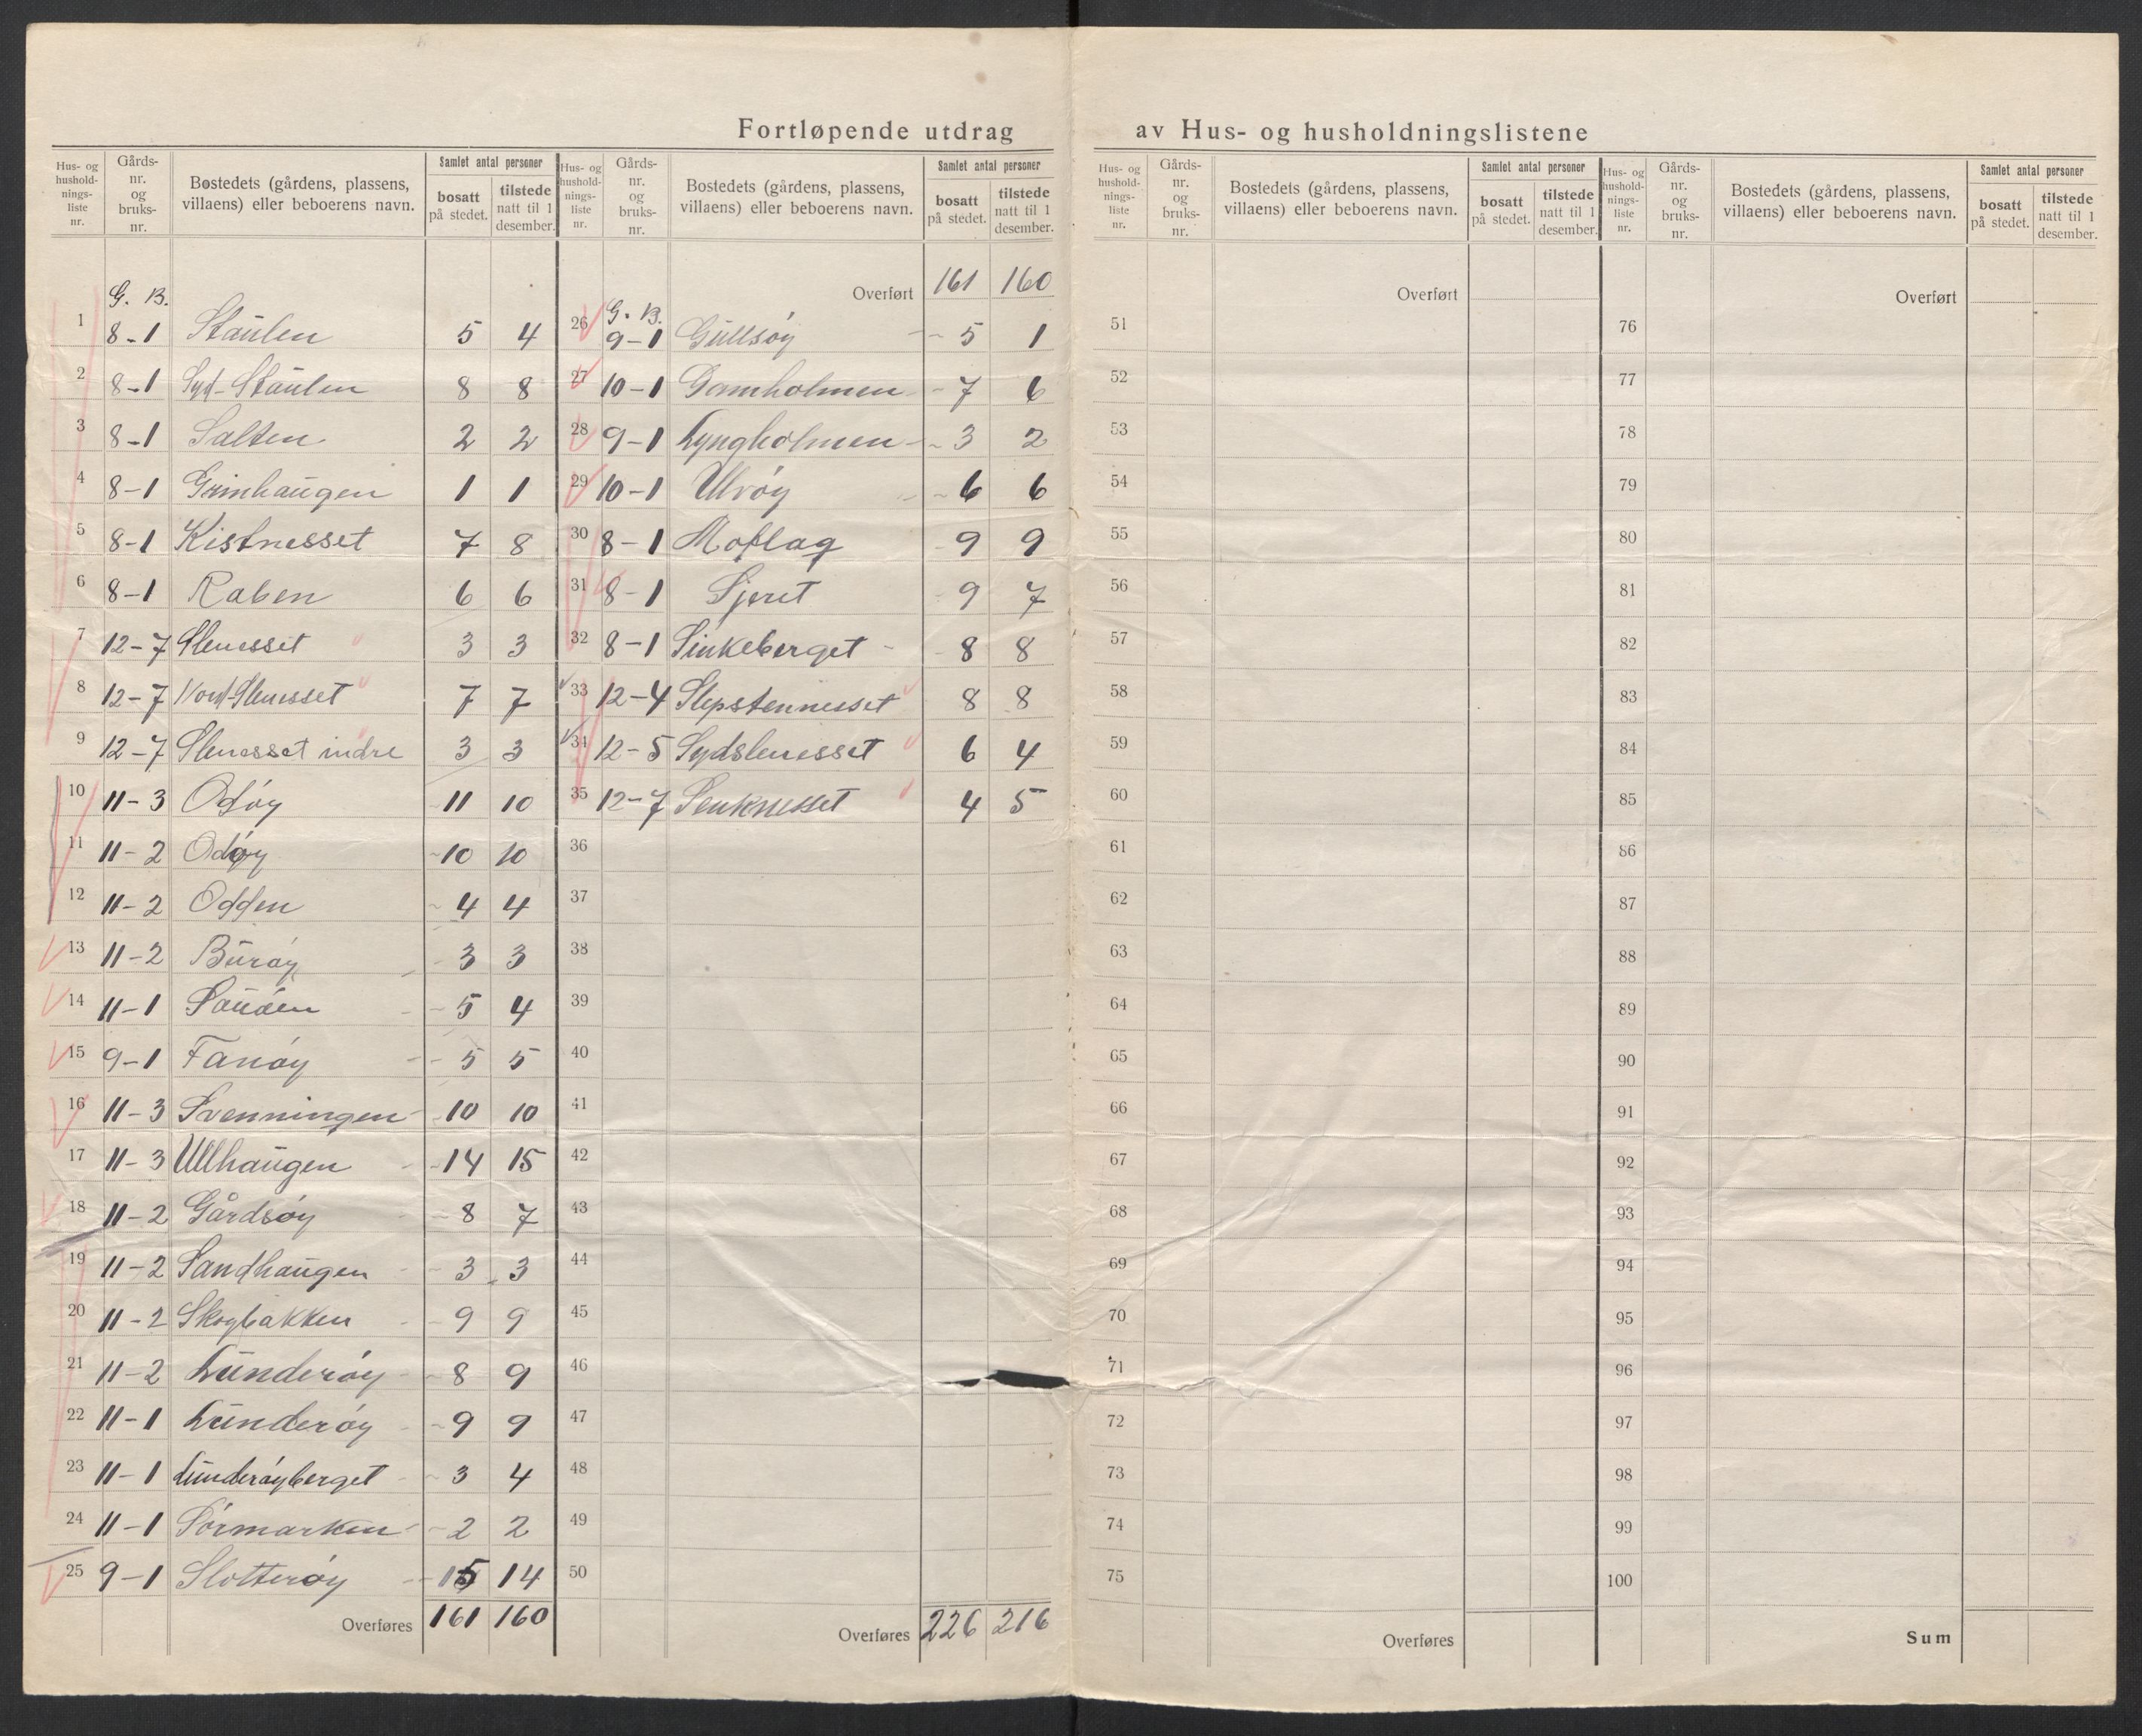 Fortløpende utdrag av Hus- og husholdningslistene
Hus- og husholdningsliste nr. Gårdsnr. og bruksnr. Bostedets (gårdens, plassens, villaens) eller beboerens navn. Samlet antal personer bosatt på stedet. tilstede natt til 1 desember.
G. B.
1 8-1 Staulen 5 4
2 8-1 Syd-Staulen 8 8
3 8-1 Salten 2 2
4 8-1 Grinhaugen 1 1
5 8-1 Kistnesset 7 8
6 8-1 Raben 6 6
7 12-7 Slenesset 3 3
8 12-7 Nord-Slenesset 7 7
9 12-7 Slenesset indre 3 3
10 11-3 Odøy 11 10
11 11-2 Odøy 10 10
12 11-2 Odden 4 4
13 11-2 Burøy 3 3
14 11-1 5 4
15 9-1 Fanøy 5 5
16 11-3 Svenningen 10 10
17 11-3 Ullhaugen 14 15
18 11-2 Gårdsøy 8 7
19 11-2 Sandhaugen 3 3
20 11-2 Skogbakken 9 9
21 11-2 Lunderøy 8 9
22 11-1 Lunderøy 9 9
23 11-1 Lunderøyberget 3 4
24 11-1 Sørmarken 2 2
25 9-1 Slotterøy 15 14
Overføres 161 160
Hus- og husholdningsliste nr. Gårdsnr. og bruksnr. Bostedets (gårdens, plassens, villaens) eller beboerens navn. Samlet antal personer bosatt på stedet. tilstede natt til 1 desember.
Overført 161 160
G. B.
26 9-1 Gullsøy 5 1
27 10-1 Damholmen 7 6
28 9-1 Lyngholmen 3 2
29 10-1 Ulvøy 6 6
30 8-1 Moflag 9 9
31 8-1 9 7
32 8-1 Sinkeberget 8 8
33 12-4 Slepstennesset 8 8
34 12-5 Sydslenesset 6 4
35 12-7 Senknesset 4 5
36
37
38
39
40
41
42
43
44
45
46
47
48
49
50
Overføres 226 216
Hus- og husholdningsliste nr. Gårdsnr. og bruksnr. Bostedets (gårdens, plassens, villaens) eller beboerens navn. Samlet antal personer bosatt på stedet. tilstede natt til 1 desember.
Overført
51
52
53
54
55
56
57
58
59
60
61
62
63
64
65
66
67
68
69
70
71
72
73
74
75
Overføres
Hus- og husholdningsliste nr. Gårdsnr. og bruksnr. Bostedets (gårdens, plassens, villaens) eller beboerens navn. Samlet antal personer bosatt på stedet. tilstede natt til 1 desember.
Overført
76
77
78
79
80
81
82
83
84
85
86
87
88
89
90
91
92
93
94
95
96
97
98
99
100
Sum